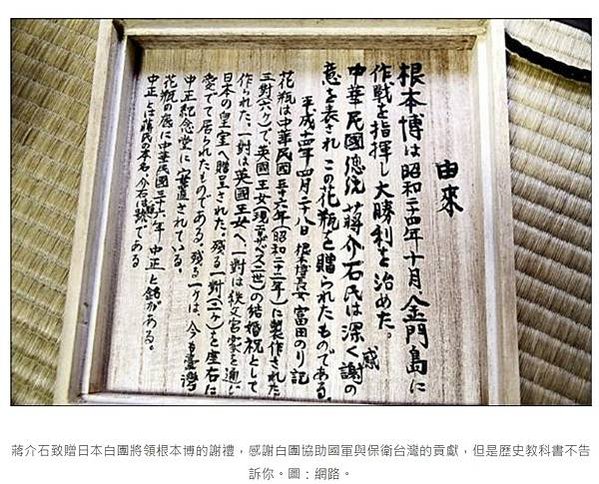 由來
根本博は昭和二十四年十月、金門島に
作戦を指揮し大勝利を治めた。
中華民國總統蔣介石氏は深く感謝の
意を表され この花瓶を贈られたものである
平成十四年四月二十八日 根本博長女 富田のり 記
花瓶は中華民國三十六年(昭和二十二年)に製作された
三對(六ケ)で、英國王女(現エリザベス二世)の結婚祝として
作られた。一對は英國王女へ、一對は秩父宮家を通じ
日本の皇室へ贈呈された。残る一對(二ケ)を座右に
愛でて居られたものである。残る一ケは、今も臺灣
中正紀念堂に安置されている。
花瓶の底に中華民國三十六年 中正と銘がある。
中正とは蔣氏の本名、介石は號である
蔣介石致贈日本白團將領根本博的謝禮，感謝白團協助國軍與保衛台灣的貢獻，但是歷史教科書不告
訴你。圖：網路。